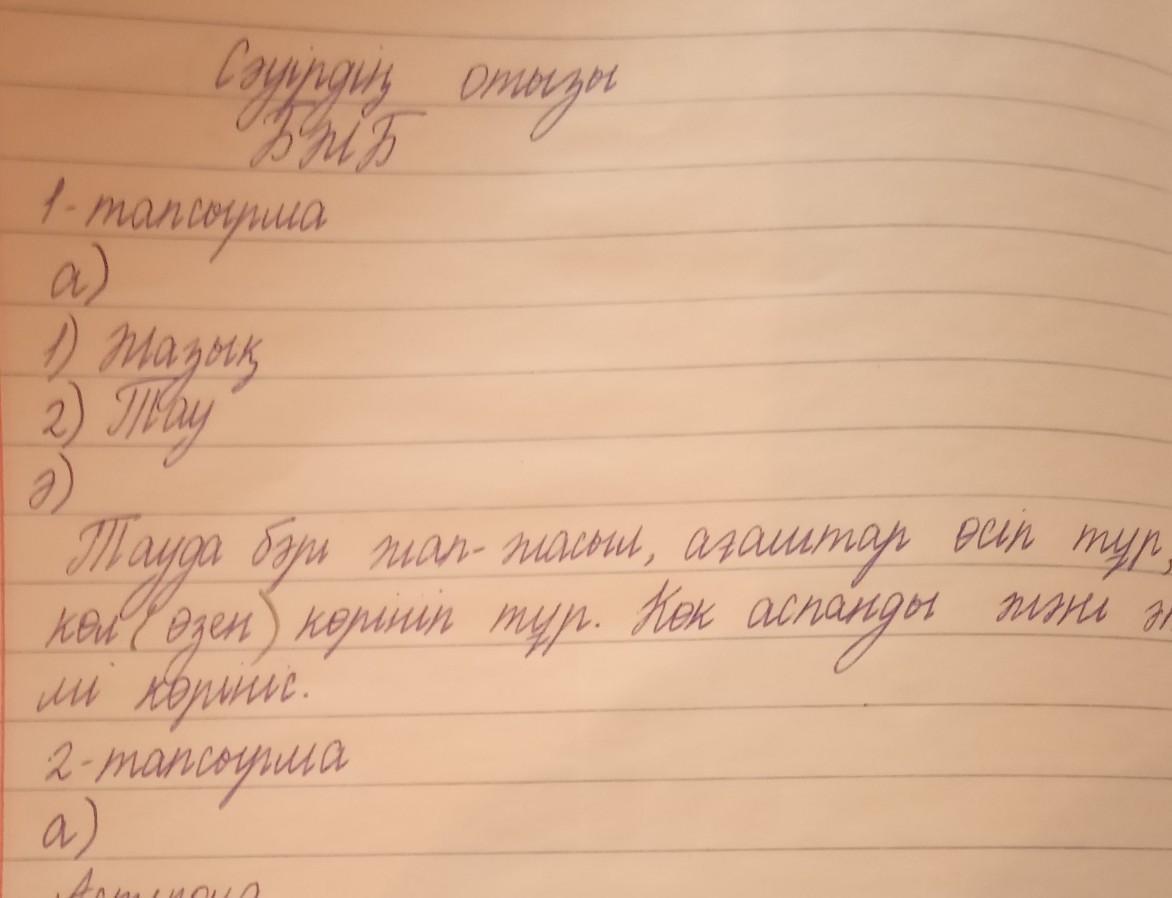 Сәуірдің отызы
БЖБ
1-тапсырма
а)
1) Жазық
2) Тау
ә)
Тауда бәрі жап-жасыл, ағаштар өсіп тұр,
көл (өзен) көрініп тұр. Көк аспанды және
лі көрініс.
2-тапсырма
а)